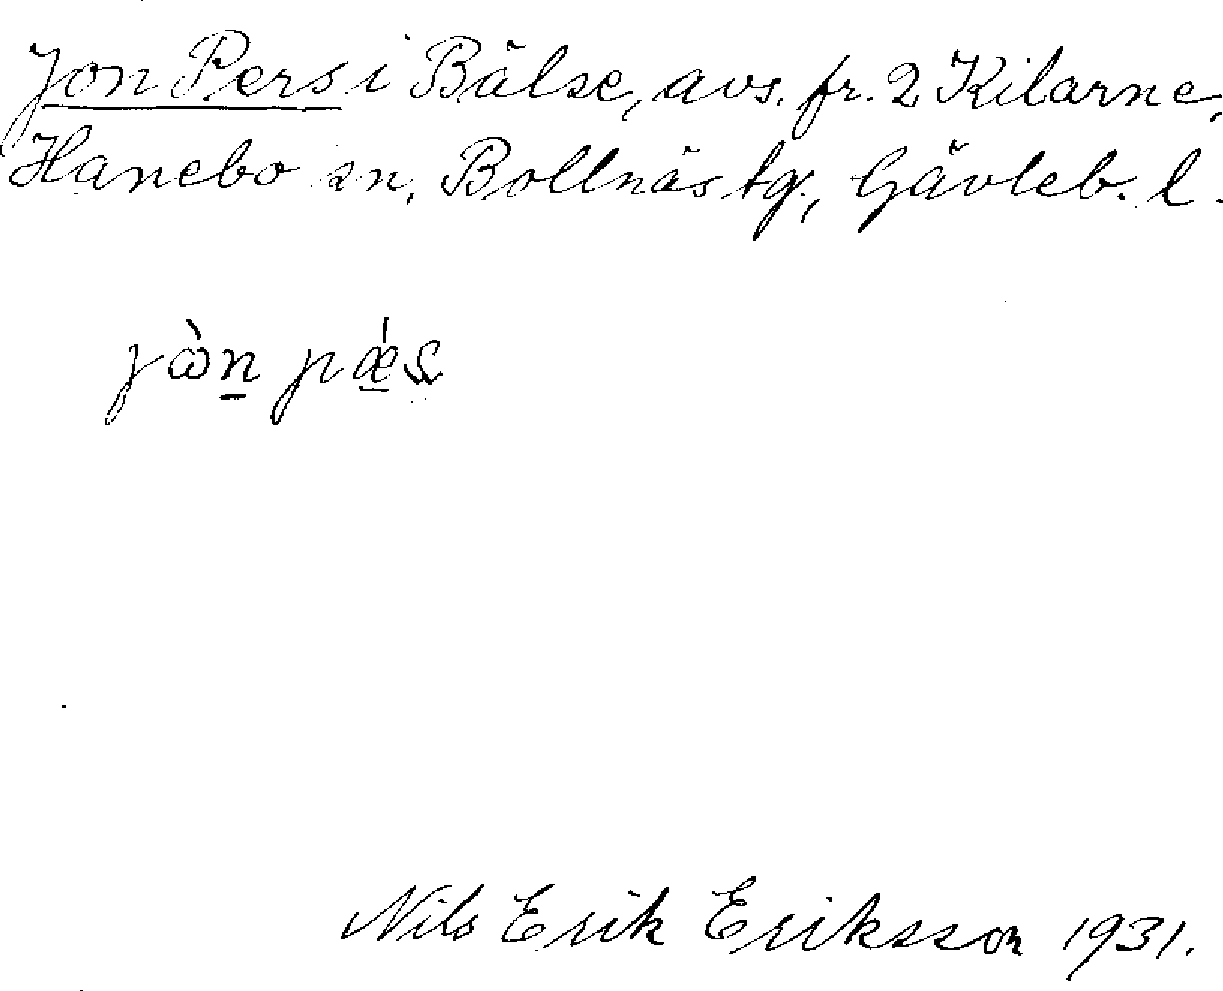 Jon Pers i Bälse, avs. fr. 2 Kilarne,
Hanebo sn, Bollnäs tg., Gävleb. l.
jὼn pǽs
Nils Erik Eriksson 1931.